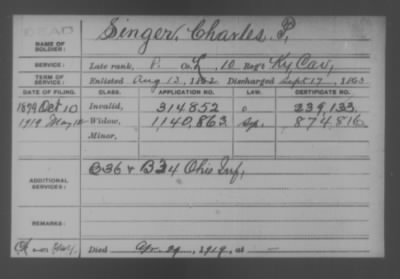 DEAD
NAME OF SOLDIER: Singer, Charles P,
SERVICE: Late rank, P. Co. L, 10 Reg't Ky Cav,
TERM OF SERVICE: Enlisted Aug 13, 1862 Discharged Sept 17, 1863
DATE OF FILING. CLASS. APPLICATION NO. LAW. CERTIFICATE NO.
1879 Oct 10 Invalid, 314852 239,133
1919 May Widow, 1,140,863 874,816
Minor,
ADDITIONAL SERVICES: B36 & B34 Ohio Inf,
REMARKS:
Died Apr. 29, 1919, at —